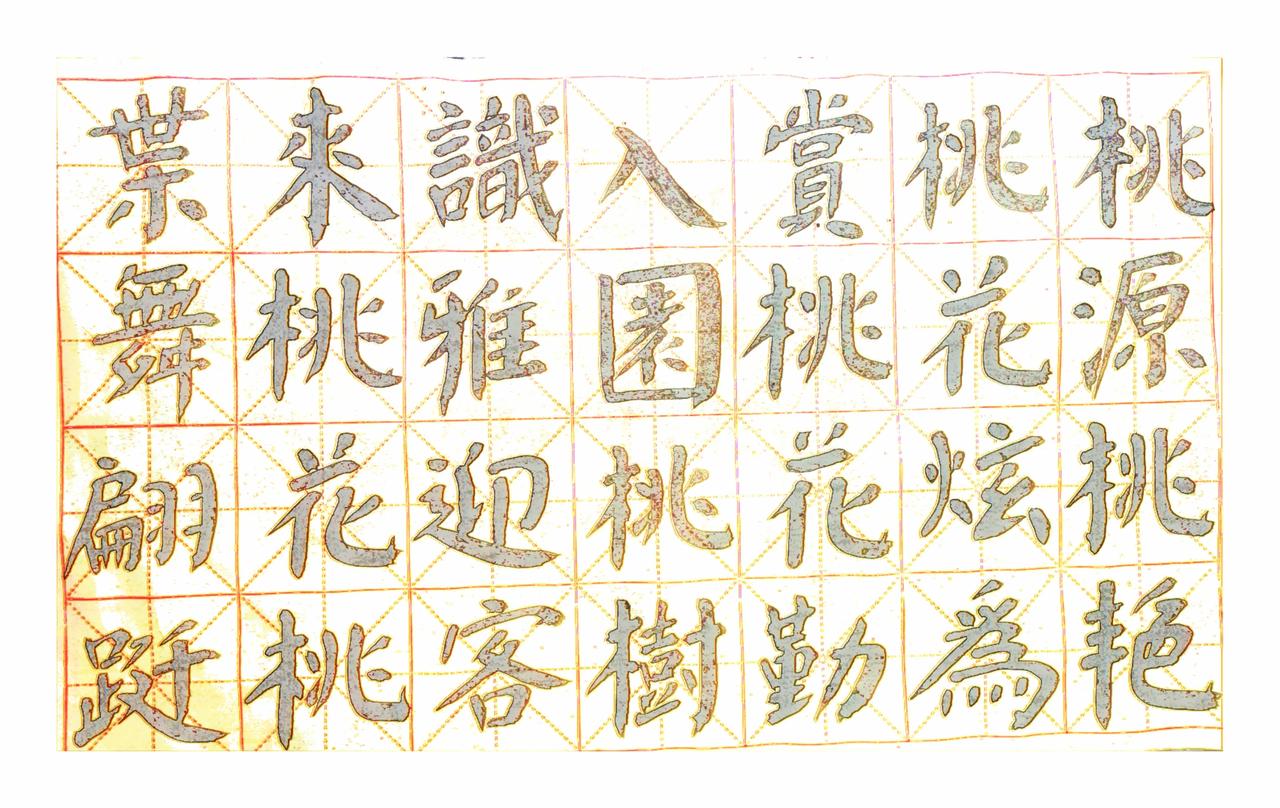 桃源桃艳
桃花炫為
賞桃花勤
入園桃樹
識雅迎客
来桃花桃
葉舞翩跹